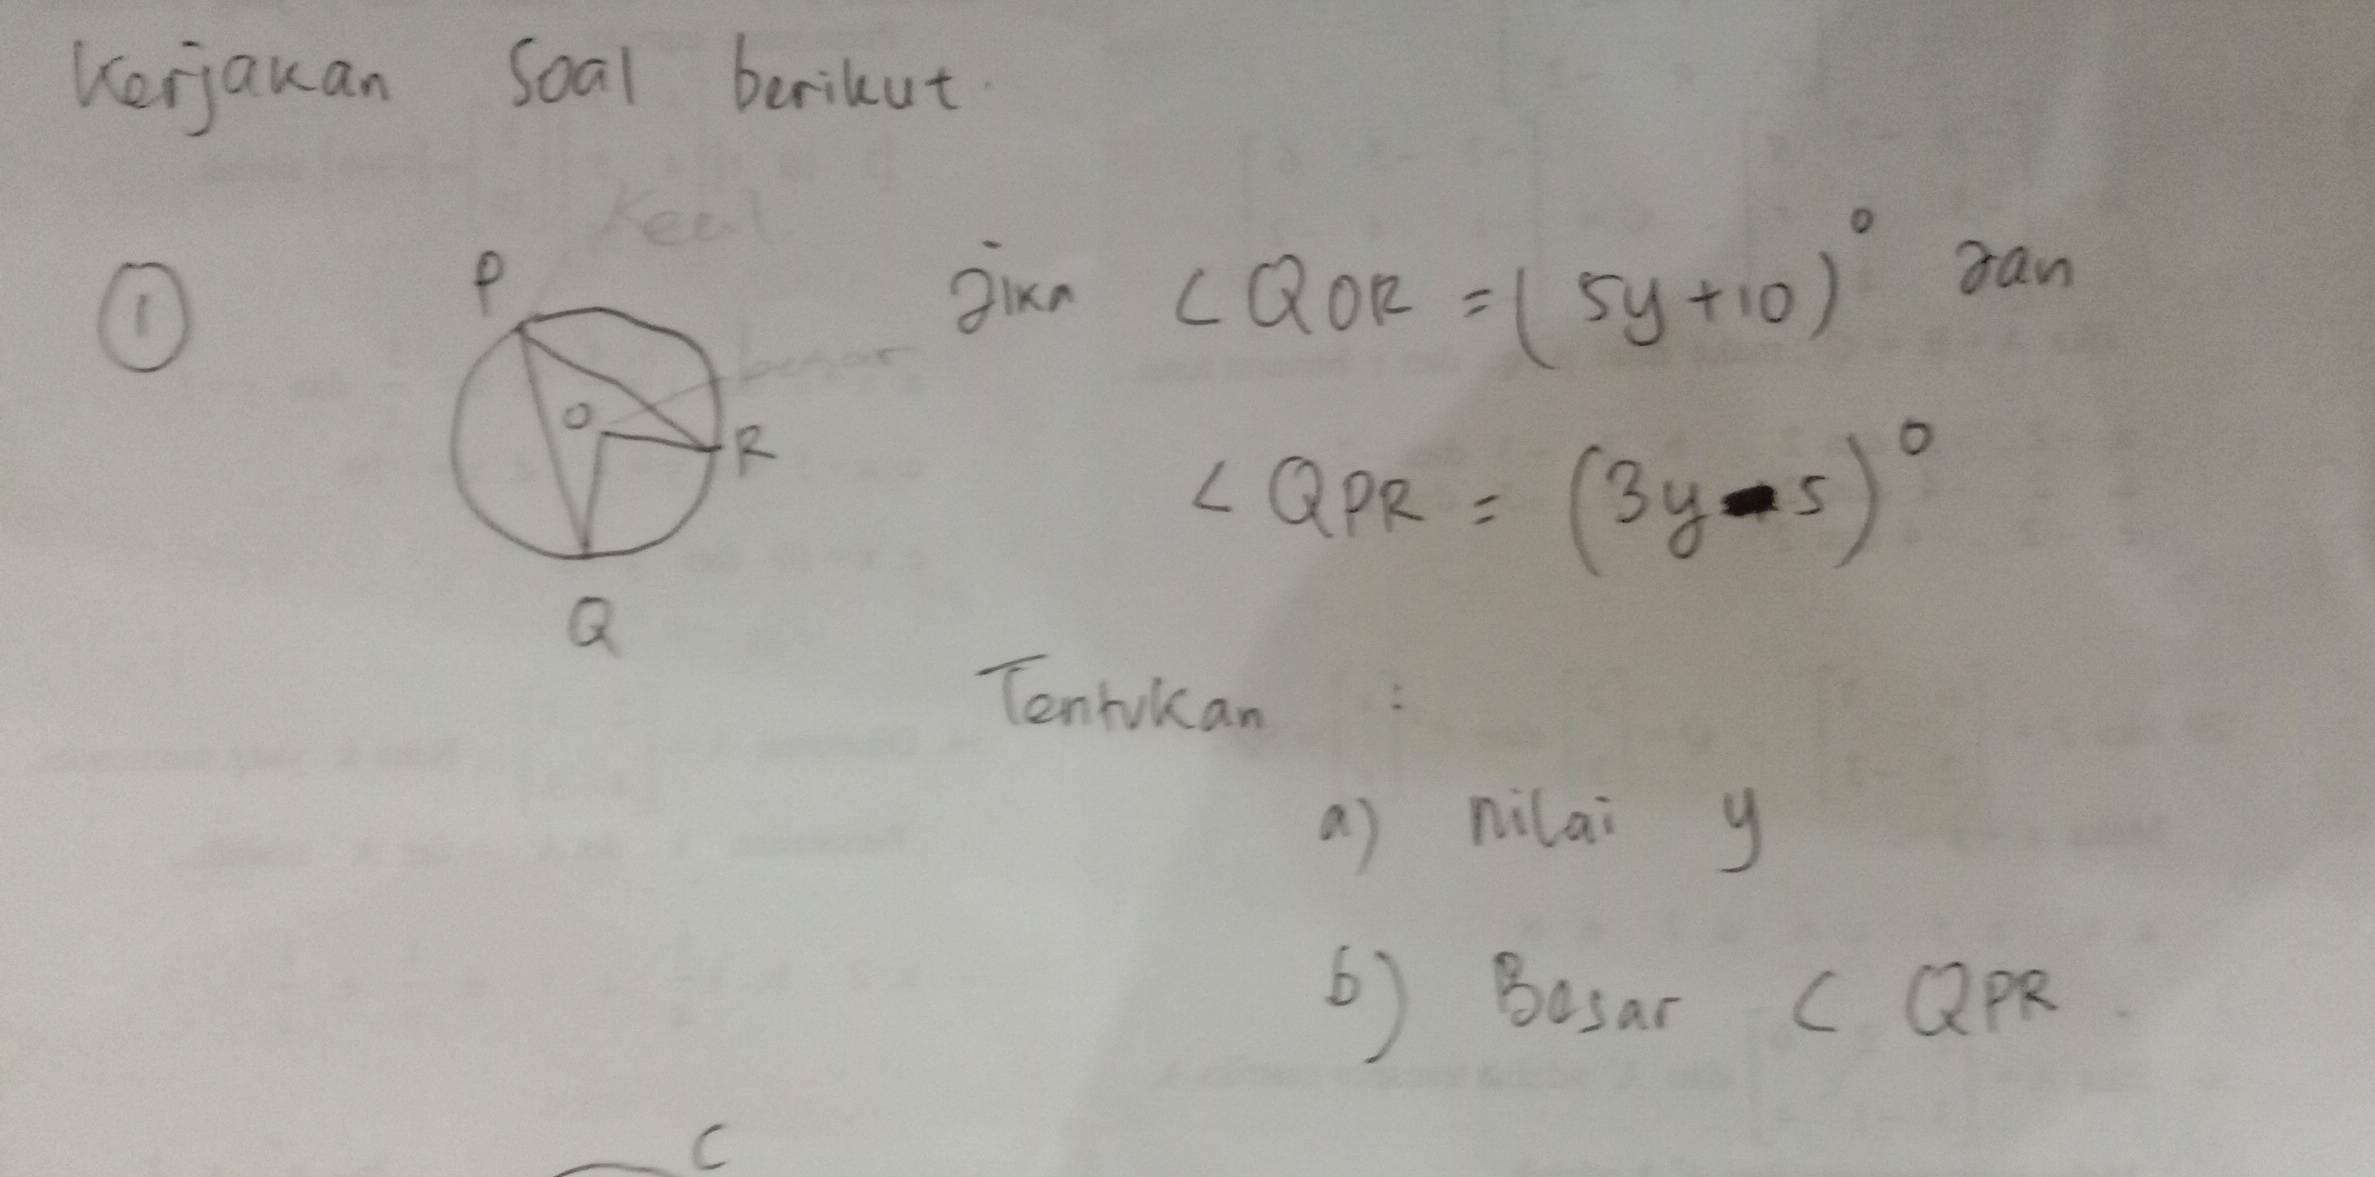 Kerjakan Soal berikut.
Kecil
① P Jika < QOR = (5y+10)° dan
besar
O
R
< QPR = (3y-5)°
Q
Tentukan :
a) nilai y
b) Besar < QPR.
C